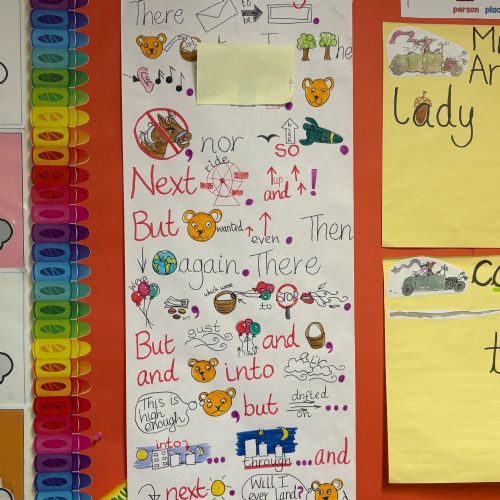 There to be
person
he
nor high so
Next ride up and !
But wanted even . Then
again . There
were
which were to STOP
But gust and ,
and into air
This is high enough , but drifted on ...
into?
through ... and
next Well I ever land?
lady